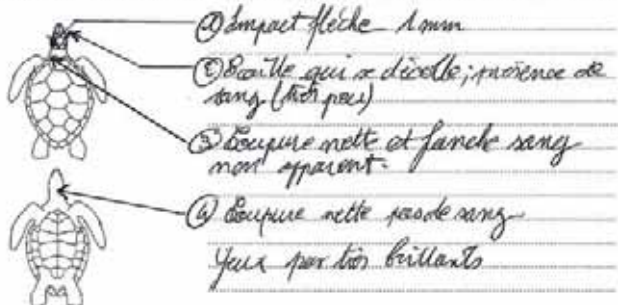 ① Impact flèche 1 mm
② Ecaille qui se décolle; présence de
sang (très peu)
③ Coupure nette et franche sang
non apparent.
④ Coupure nette pas de sang
Yeux pas très brillants